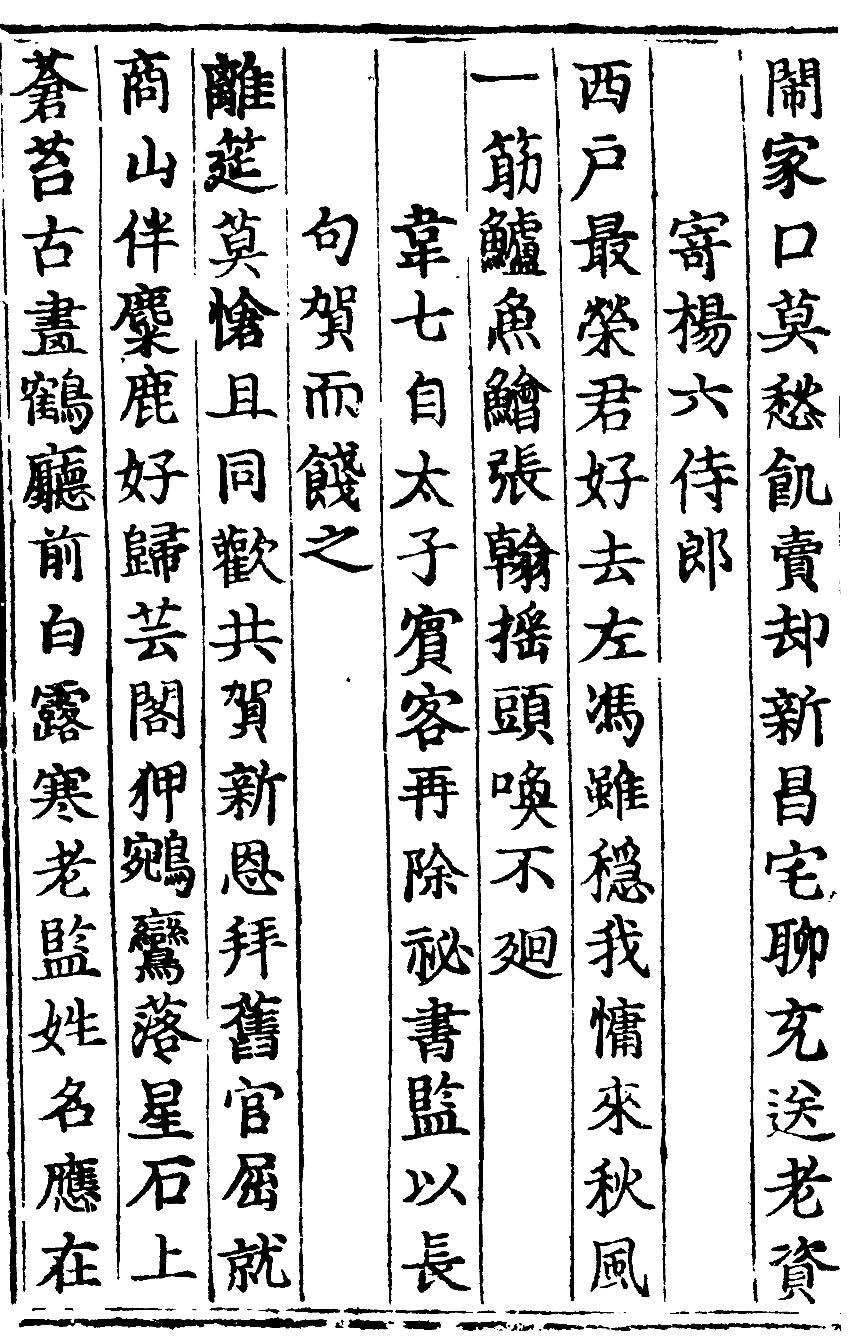 鬧家口莫愁飢賣却新昌宅聊充送老資
寄楊六侍郎
西戶最榮君好去左馮雖穩我慵來秋風
一筯鱸魚鱠張翰搖頭喚不廻
韋七自太子賓客再除祕書監以長
句賀而餞之
離筵莫愴且同歡共賀新恩拜舊官屈就
商山伴麋鹿好歸芸閣狎鵷鸞落星石上
蒼苔古畫鶴廳前白露寒老監姓名應在